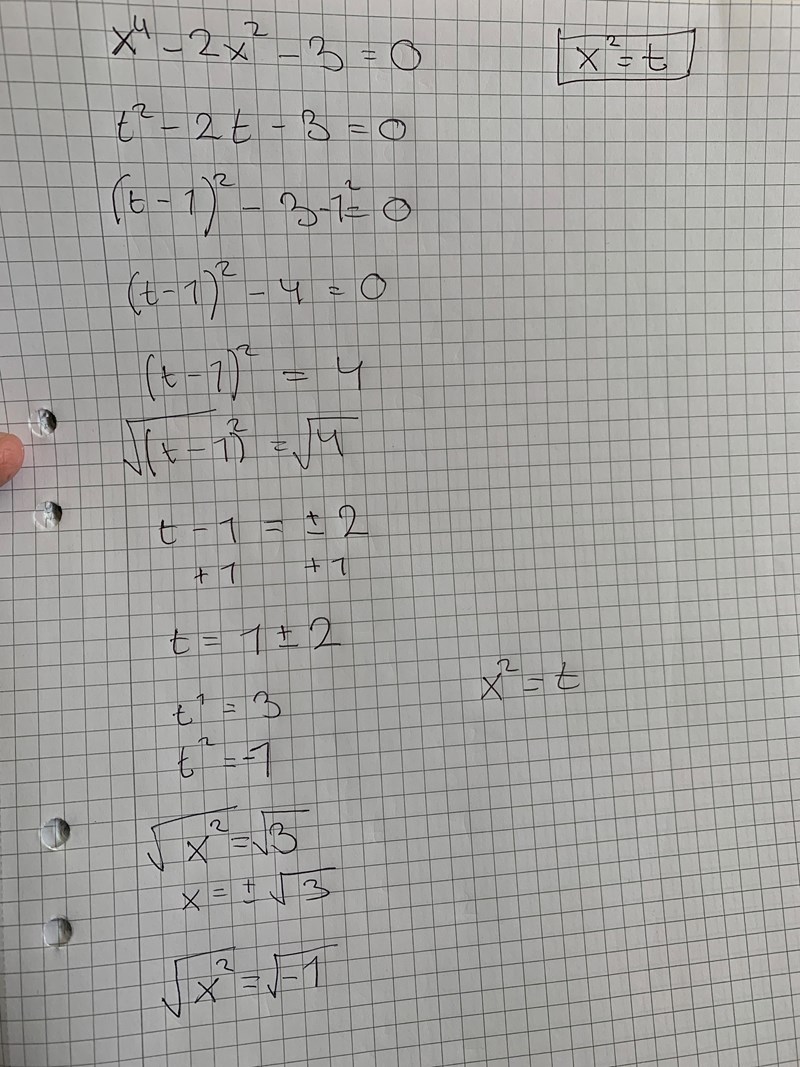 x⁴ - 2x² - 3 = 0
x² = t
t² - 2t - 3 = 0
(t - 1)² - 3 - 1² = 0
(t - 1)² - 4 = 0
(t - 1)² = 4
√(t - 1)² = √4
t - 1 = ± 2
+1 +1
t = 1 ± 2
x² = t
t¹ = 3
t² = -1
√x² = √3
x = ± √3
√x² = √-1